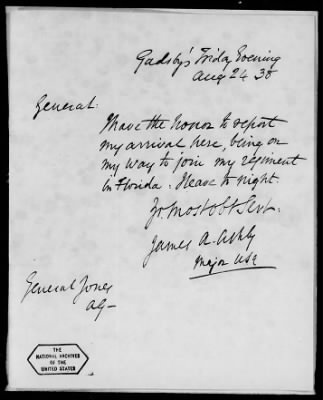 Gadsby's Friday Evening
Aug 24 38
General.
I have the honor to report
my arrival here, being on
my way to join my regiment
in Florida. I leave to night.
Yr. Most Obt Servt.
James A. Ashby
Major USA
General Jones
AG
THE
NATIONAL ARCHIVES
OF THE
UNITED STATES